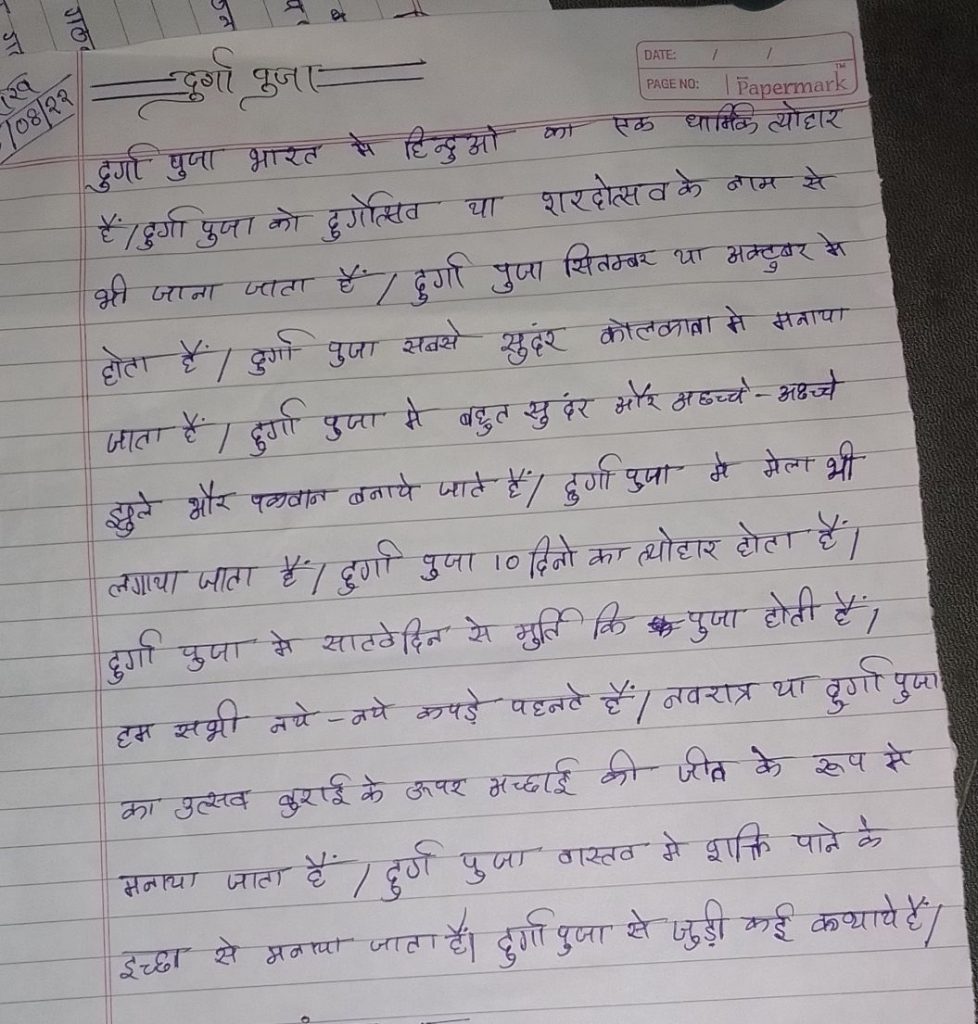 दुर्गा पुजा
DATE: / /
PAGE NO:
Papermark™
/08/22
दुर्गा पुजा भारत मे हिन्दुओ का एक धार्मिक त्योहार
हैं/दुर्गा पुजा को दुर्गोत्सिव या शरदोत्सव के नाम से
भी जाना जाता हैं / दुर्गा पुजा सितम्बर या अक्टुबर मे
होता हैं / दुर्गा पुजा सबसे सुदंर कोलकाता मे मनाया
जाता हैं / दुर्गा पुजा मे बहुत सुदंर और अच्छे-अच्छे
झुले और पकवान बनाये जाते हैं/ दुर्गा पुजा मे मेला भी
लगाया जाता हैं / दुर्गा पुजा 10 दिनो का त्योहार होता हैं/
दुर्गा पुजा मे सातवे दिन से मुर्ति कि पुजा होती हैं/
हम सभी नये-नये कपड़े पहनते हैं/ नवरात्र या दुर्गा पुजा
का उत्सव बुराई के ऊपर अच्छाई की जीत के रूप मे
मनाया जाता हैं / दुर्गा पुजा वास्तव मे शक्ति पाने के
इच्छा से मनाया जाता हैं/ दुर्गा पुजा से जुड़ी कई कथाये हैं/